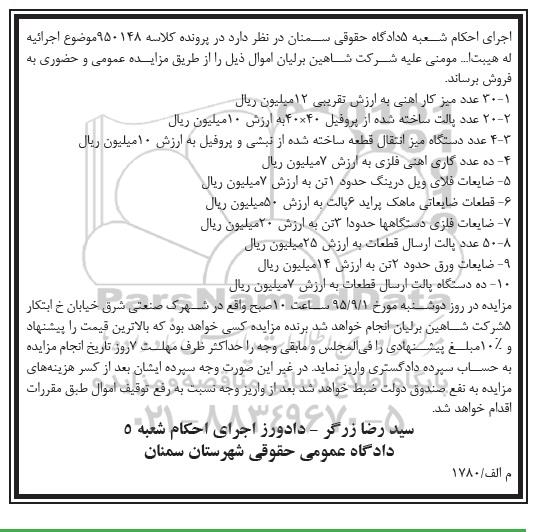 اجرای احکام شعبه ۵دادگاه حقوقی سمنان در نظر دارد در پرونده کلاسه ۹۵۰۱۴۸موضوع اجرائیه
له هیبت‌ا... مومنی علیه شرکت شاهین برلیان اموال ذیل را از طریق مزایده عمومی و حضوری به
فروش برساند.
۱-۳۰ عدد میز کار اهنی به ارزش تقریبی ۱۲میلیون ریال
۲-۲۰ عدد پالت ساخته شده از پروفیل ۴۰×۴۰به ارزش ۱۰میلیون ریال
۳-۴ عدد دستگاه میز انتقال قطعه ساخته شده از نبشی و پروفیل به ارزش ۱۰میلیون ریال
۴- ده عدد گاری اهنی فلزی به ارزش ۷میلیون ریال
۵- ضایعات فلای ویل درینگ حدود ۱تن به ارزش ۷میلیون ریال
۶- قطعات ضایعاتی ماهک پراید ۶پالت به ارزش ۵۰میلیون ریال
۷- ضایعات فلزی دستگاهها حدودا ۳تن به ارزش ۲۰میلیون ریال
۸-۵۰ عدد پالت ارسال قطعات به ارزش ۲۵میلیون ریال
۹- ضایعات ورق حدود ۲تن به ارزش ۱۴میلیون ریال
۱۰- ده دستگاه پالت ارسال قطعات به ارزش ۷میلیون ریال
مزایده در روز دوشنبه مورخ ۹۵/۹/۱ ساعت ۱۰صبح واقع در شهرک صنعتی شرق خیابان خ ابتکار
۵شرکت شاهین برلیان انجام خواهد شد برنده مزایده کسی خواهد بود که بالاترین قیمت را پیشنهاد
و ۱۰٪مبلغ پیشنهادی را فی‌المجلس و مابقی وجه را حداکثر ظرف مهلت ۷روز تاریخ انجام مزایده
به حساب سپرده دادگستری واریز نماید. در غیر این صورت وجه سپرده ایشان بعد از کسر هزینه‌های
مزایده به نفع صندوق دولت ضبط خواهد شد بعد از واریز وجه نسبت به رفع توقیف اموال طبق مقررات
اقدام خواهد شد.
سید رضا زرگر - دادورز اجرای احکام شعبه ۵
دادگاه عمومی حقوقی شهرستان سمنان
م الف/۱۷۸۰
ParsNamadData
۰۲۱-۸۸۳۴۹۶۷۰-۵